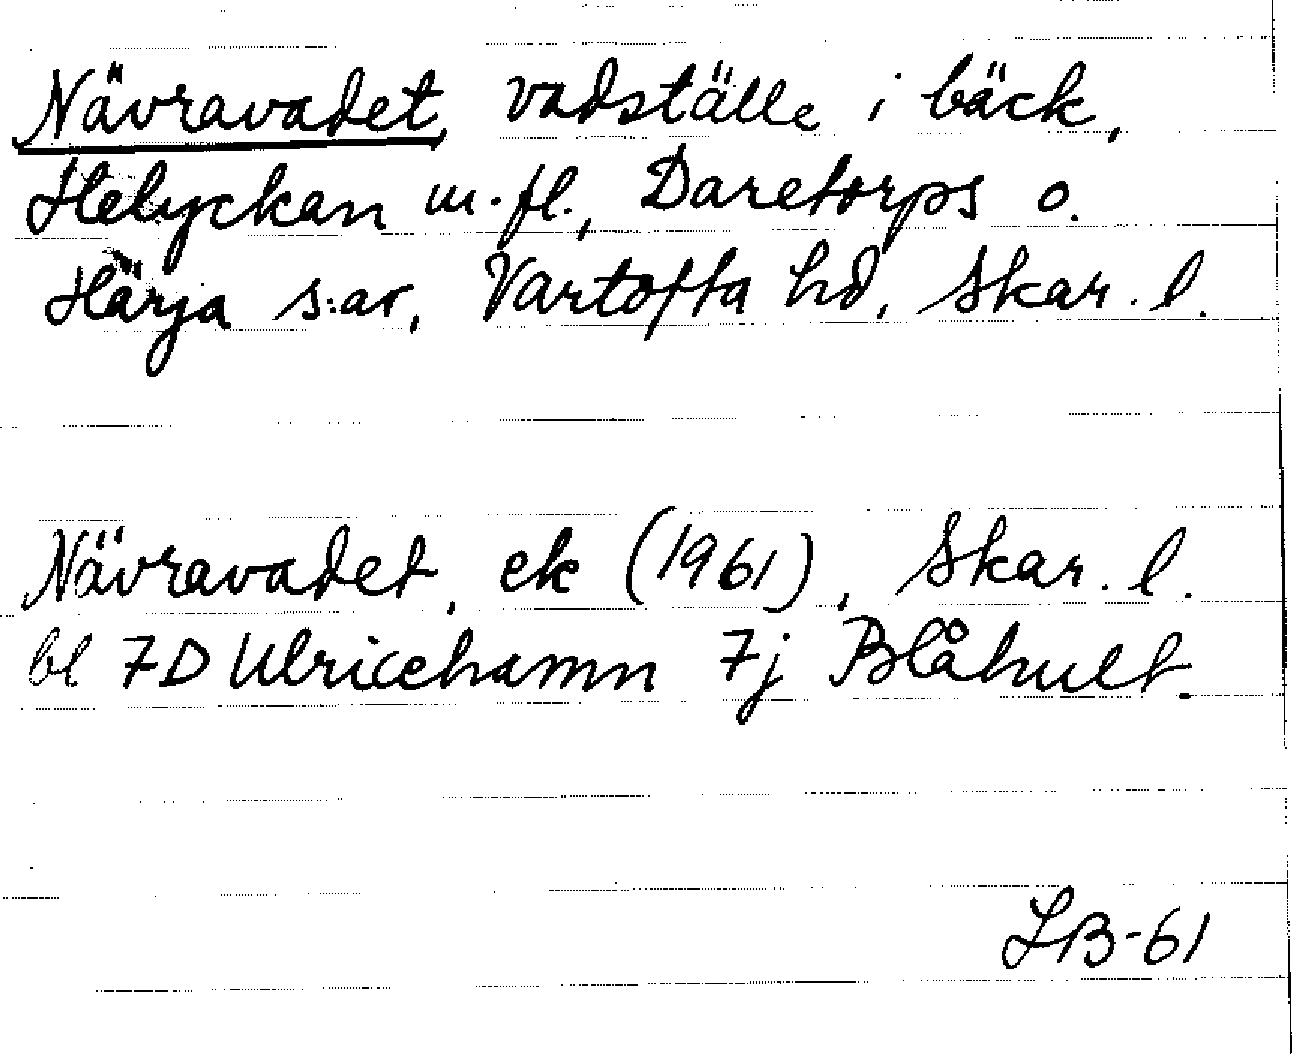 Nävravadet, vadställe i bäck,
Helyckan m.fl., Daretorps o.
Härja s:ar, Vartofta hd, Skar. l.
Nävravadet, ek (1961), Skar. l.
bl 7D Ulricehamn 7j Blåhult.
LB-61